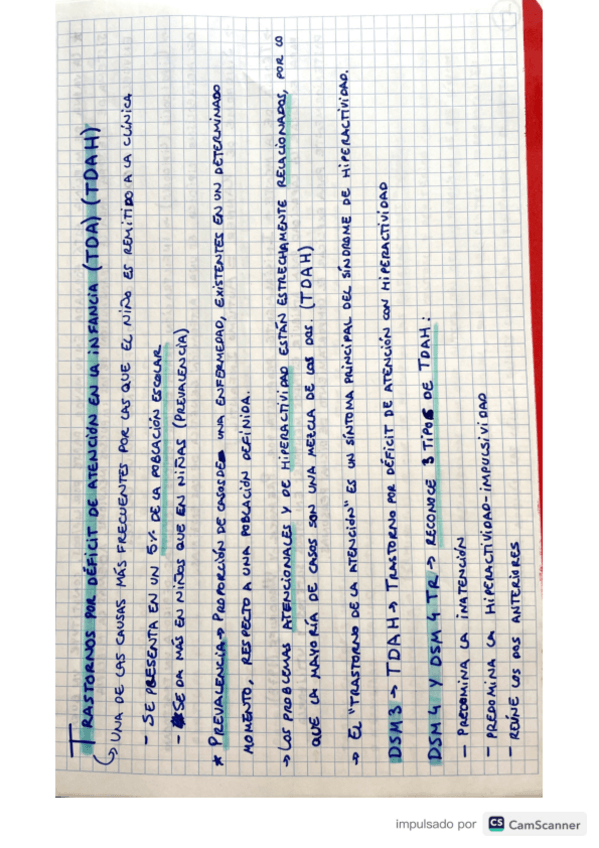 TRASTORNOS POR DÉFICIT DE ATENCIÓN EN LA INFANCIA (TDA) (TDAH)
↳ UNA DE LAS CAUSAS MÁS FRECUENTES POR LAS QUE EL NIÑO ES REMITIDO A LA CLÍNICA
- SE PRESENTA EN UN 5% DE LA POBLACIÓN ESCOLAR
- SE DA MÁS EN NIÑOS QUE EN NIÑAS (PREVALENCIA)
* PREVALENCIA → PROPORCIÓN DE CASOS DE UNA ENFERMEDAD, EXISTENTES EN UN DETERMINADO
MOMENTO, RESPECTO A UNA POBLACIÓN DEFINIDA.
→ LOS PROBLEMAS ATENCIONALES Y DE HIPERACTIVIDAD ESTÁN ESTRECHAMENTE RELACIONADOS, POR LO
QUE LA MAYORÍA DE CASOS SON UNA MEZCLA DE LOS DOS. (TDAH)
→ EL "TRASTORNO DE LA ATENCIÓN" ES UN SÍNTOMA PRINCIPAL DEL SÍNDROME DE HIPERACTIVIDAD.
DSM 3 → TDAH → TRASTORNO POR DÉFICIT DE ATENCIÓN CON HIPERACTIVIDAD
DSM 4 Y DSM 4 TR → RECONOCE 3 TIPOS DE TDAH:
- PREDOMINA LA INATENCIÓN
- PREDOMINA LA HIPERACTIVIDAD-IMPULSIVIDAD
- REÚNE LOS DOS ANTERIORES
impulsado por CS CamScanner